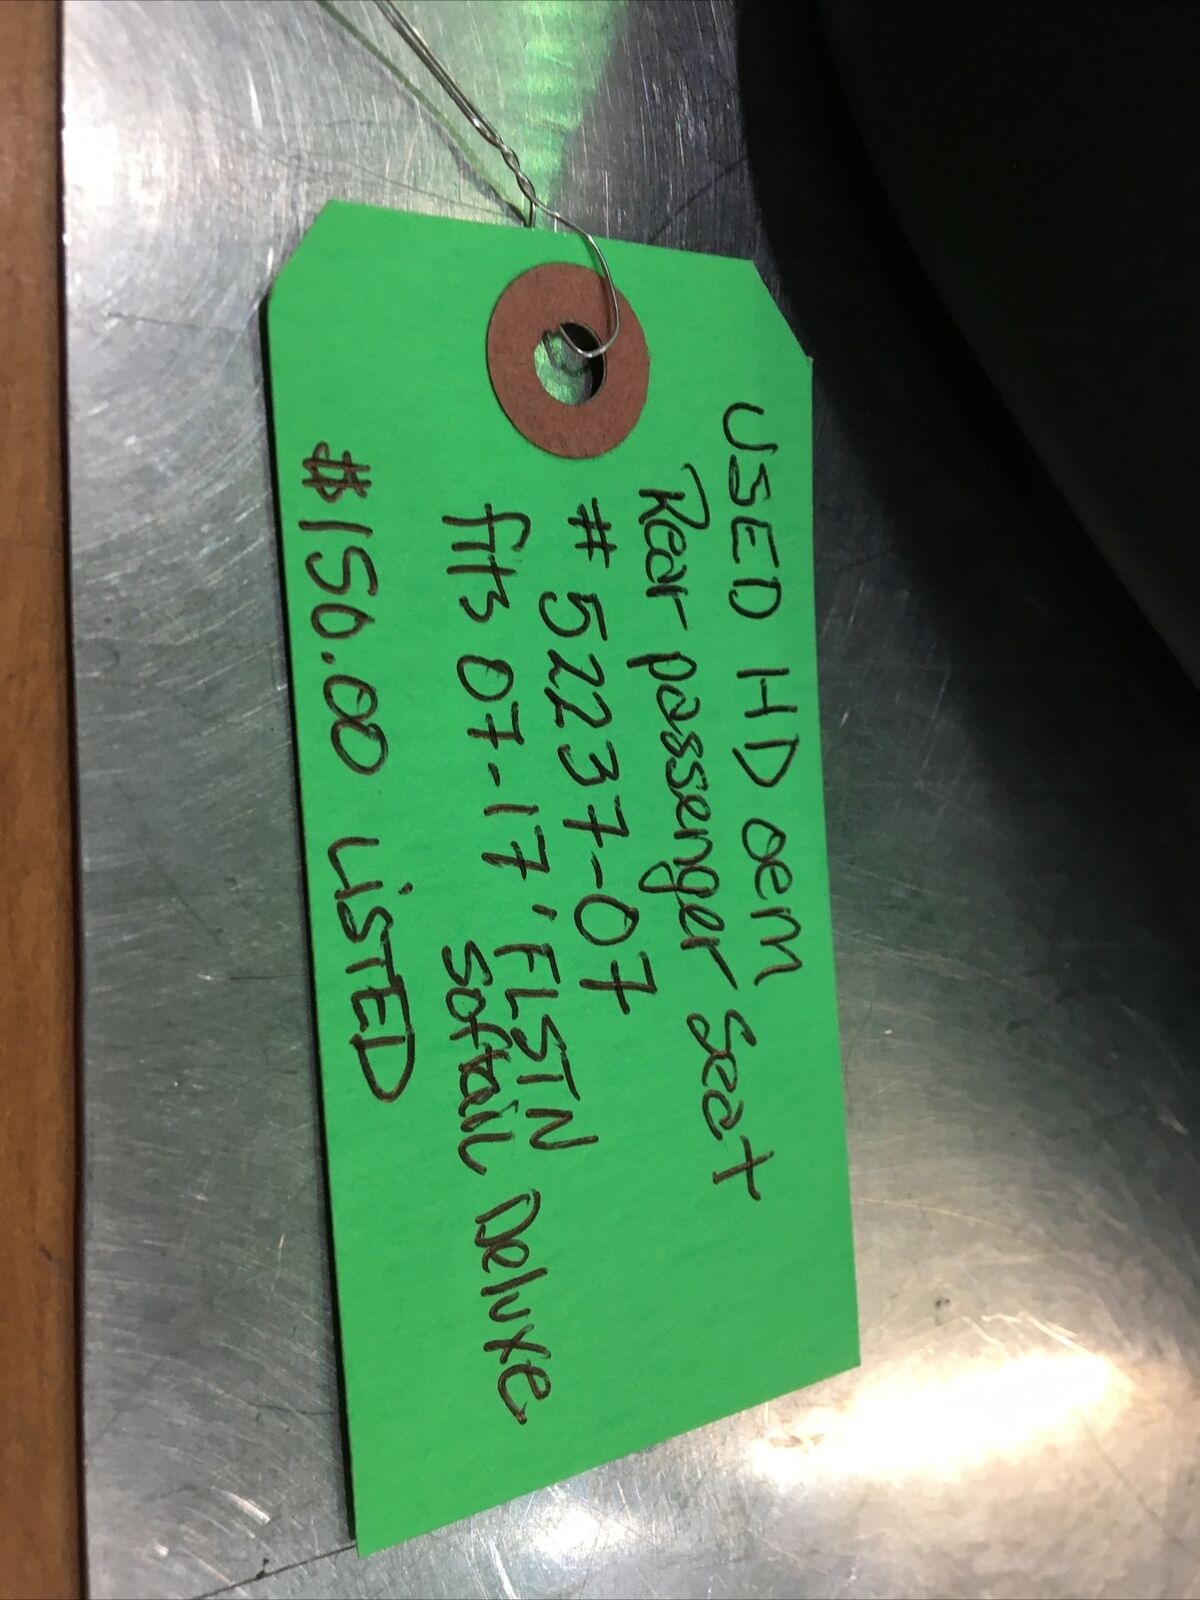 USED HD oem
Rear passenger seat
# 52237-07
fits 07-17' FLSTN
Softail Deluxe
$150.00 LISTED